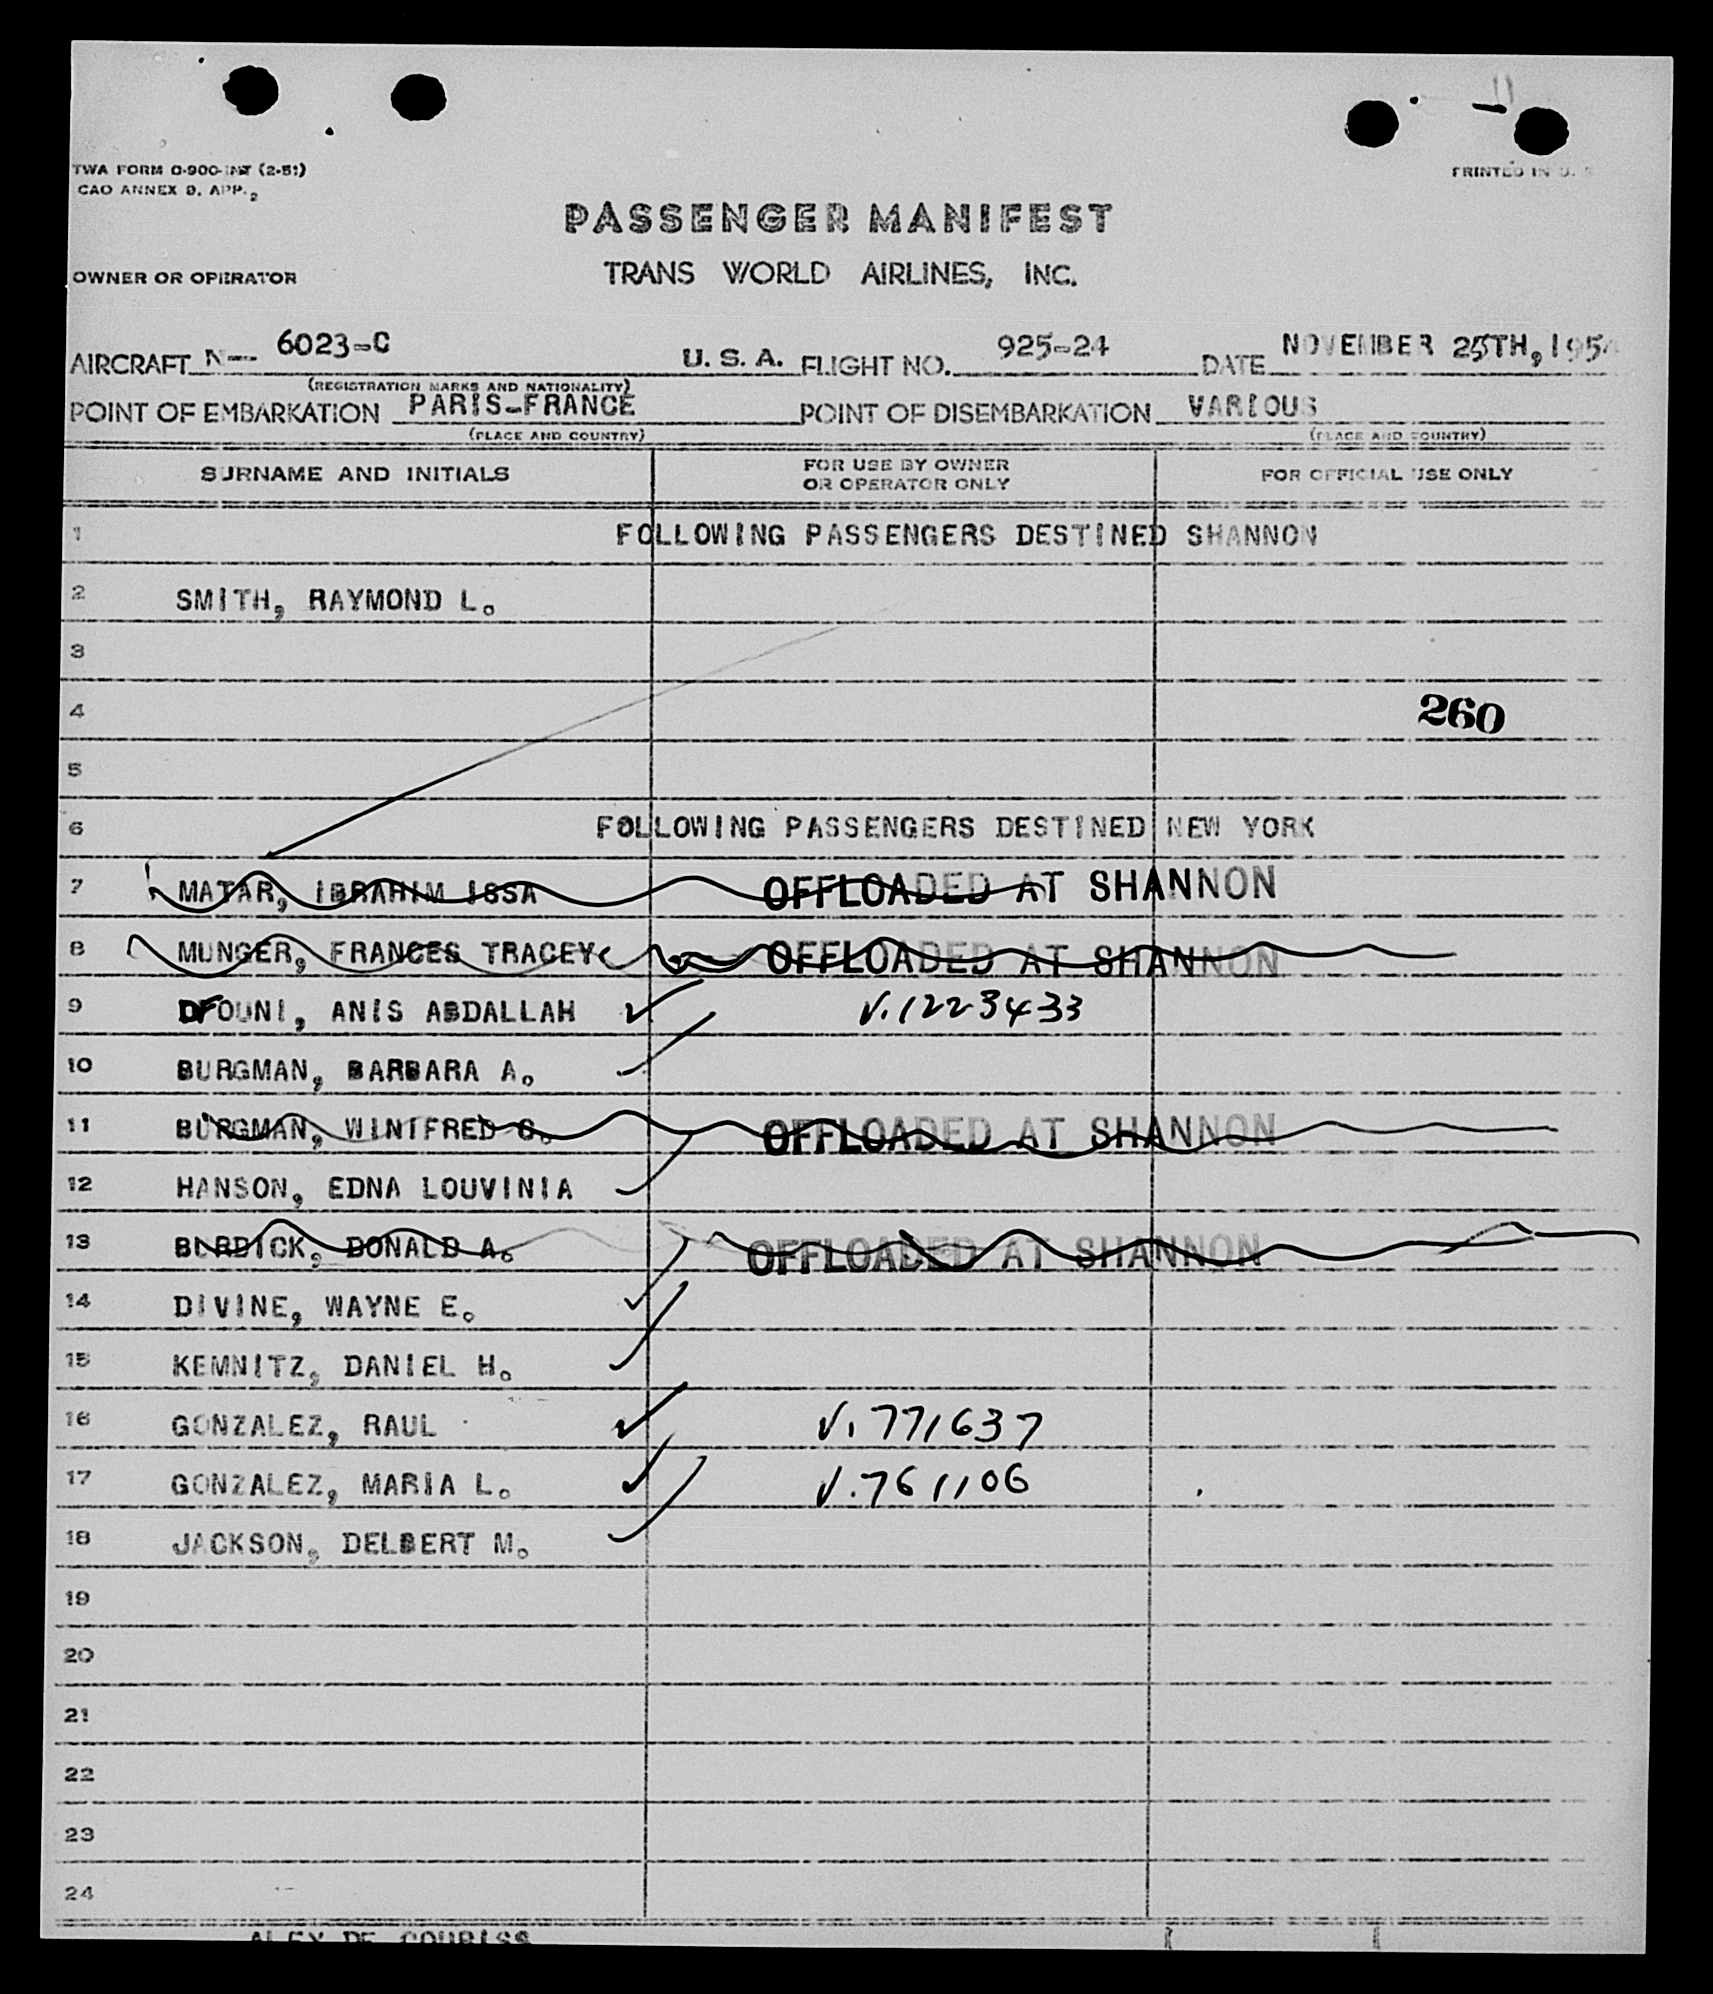 TWA FORM O-900-INT (2-51)
CAO ANNEX 9, APP. 2
PRINTED IN U. S.
PASSENGER MANIFEST
OWNER OR OPERATOR TRANS WORLD AIRLINES, INC.
AIRCRAFT N-- 6023-C U. S. A. FLIGHT NO. 925-24 DATE NOVEMBER 25TH, 1954
(REGISTRATION MARKS AND NATIONALITY)
POINT OF EMBARKATION PARIS-FRANCE POINT OF DISEMBARKATION VARIOUS
(PLACE AND COUNTRY) (PLACE AND COUNTRY)
SURNAME AND INITIALS FOR USE BY OWNER OR OPERATOR ONLY FOR OFFICIAL USE ONLY
1 FOLLOWING PASSENGERS DESTINED SHANNON
2 SMITH, RAYMOND L.
3
4 260
5
6 FOLLOWING PASSENGERS DESTINED NEW YORK
7 MATAR, IBRAHIM ISSA OFFLOADED AT SHANNON
8 MUNGER, FRANCES TRACEY OFFLOADED AT SHANNON
9 DFOUNI, ANIS ABDALLAH ✓ V.1223433
10 BURGMAN, BARBARA A. ✓
11 BURGMAN, WINIFRED OFFLOADED AT SHANNON
12 HANSON, EDNA LOUVINIA ✓
13 BURDICK, DONALD A. OFFLOADED AT SHANNON
14 DIVINE, WAYNE E. ✓
15 KEMNITZ, DANIEL H. ✓
16 GONZALEZ, RAUL ✓ V.771637
17 GONZALEZ, MARIA L. ✓ V.761106
18 JACKSON, DELBERT M. ✓
19
20
21
22
23
24